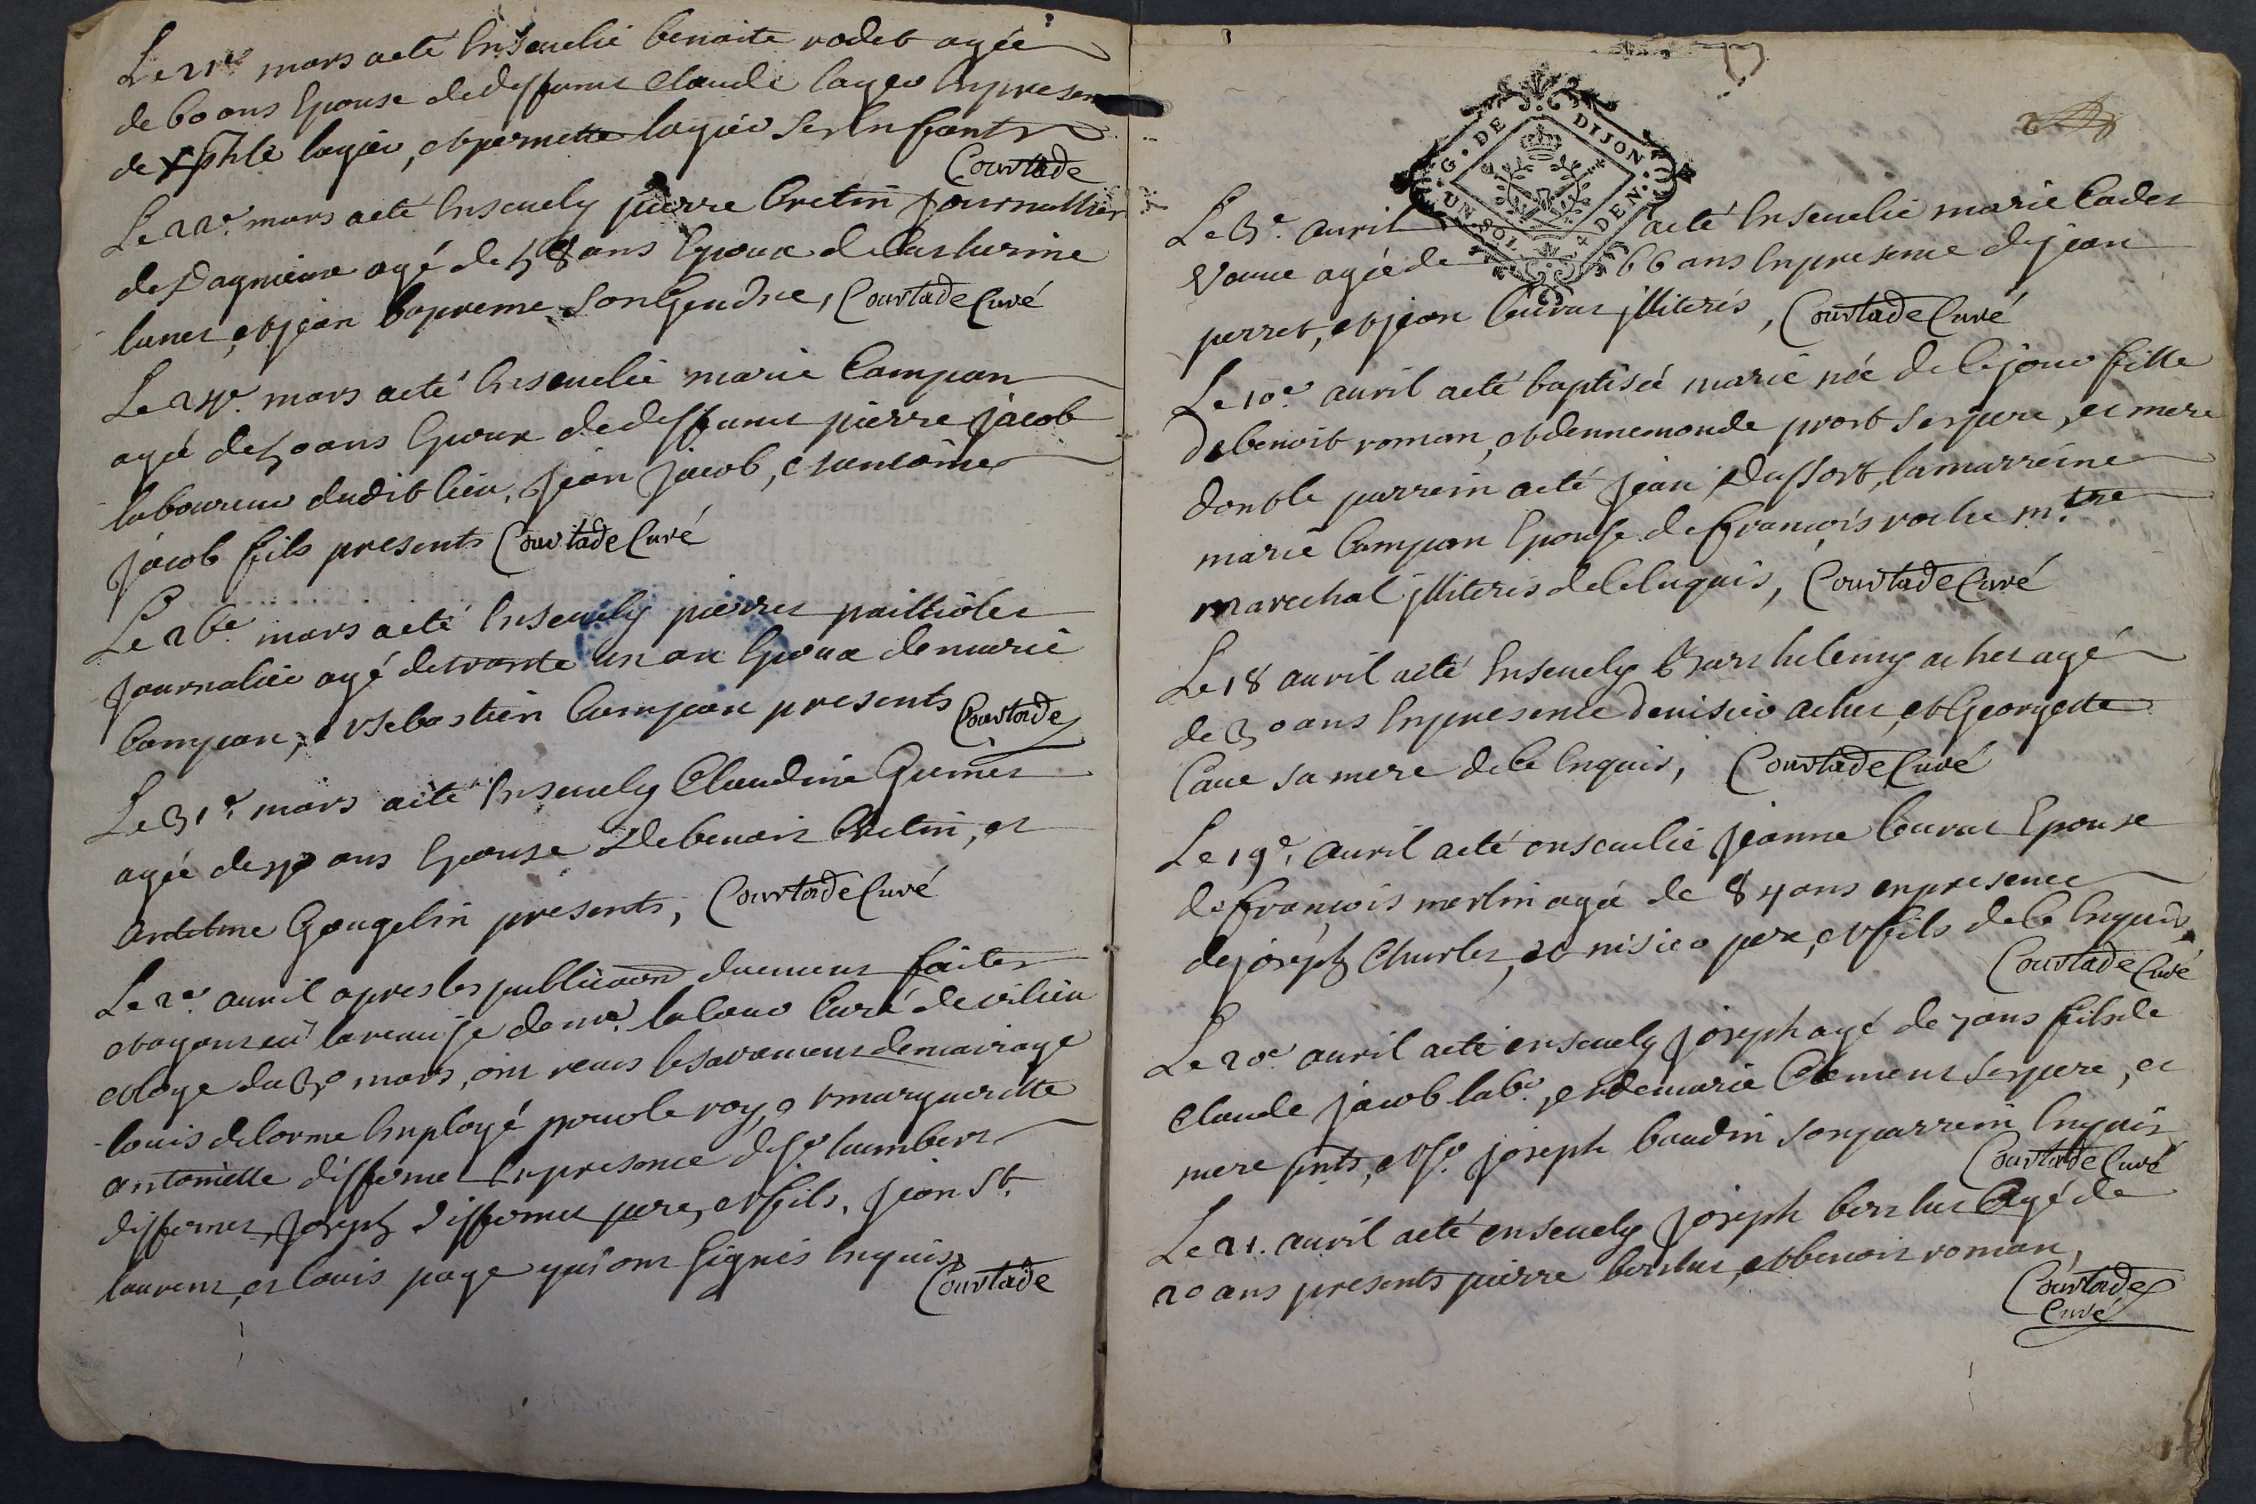 Le 21e mars a eté Ensevelie benoite rodet agée
de 60 ans Epouse de deffunt Claude layer En presen
de phle layer, et pernette layer ses Enfants
Courtade
Le 22e. mars a eté Ensevely pierre Cretin journallier
de Dagnieux agé de 58 ans Epoux de Catherine
et jean bapreme son Gendre, Courtade Curé
Le 24e. mars a eté Ensevelie marie Campan
agée de 50 ans Epoux de deffunt pierre jacob
laboureur dudit lieu, jean jacob, et antoine
jacob fils presents Courtade Curé
Le 26e mars a eté Ensevely pierre
journalier agé de trante un an Epoux de marie
Campan, et sebastien Campan presents Courtade
Le 31e. mars a eté Ensevely Claudine
agée de ans Epouse De benoit Cretin, et
Antelme Gougelin presents, Courtade Curé
Le 2e. avril apres les publicaon duement faites
et ayant eû la remise de mr. Curé de vilieu
et loye du 30 mars, ont receu les sacrement de mariage
louis delorme Employé pour le roy, et margueritte
antoniette differnet En presence de Sr. humbert
differnet, joseph differnet pere, et fils, jean St.
laurent, et louis page qui ont signés Enquis
Courtade
G. DE DIJON
UN SOL 4 DEN.
2
Le 3e. avril a eté Ensevelie marie Cadet
veuve agée de 66 ans En presence de jean
perret, et jean Cuvat illiterés, Courtade Curé
Le 10e avril a eté baptisée marie née de le jour fille
De benoit roman, et dennemonde prost ses pere, et mere
dont le parrein a eté jean Dussort, la marreine
marie Campan Epouse de francois roche m.tre
marechal illiterés de Ce Enquis, Courtade Curé
Le 18 avril a eté Ensevely Barthelemy achet agé
de 30 ans En presence denisier achet, et Georgette
Cave sa mere de Ce Enquis, Courtade Curé
Le 19e. avril a eté ensevelie jeanne Cuvat Epouse
de françois merlin agée de 84 ans en presence
de joseph Charles, et nisier pere, et fils de Ce Enquis
Courtade Curé
Le 20e avril a eté ensevely joseph agé de 7 ans fils de
Claude jacob labr. et de marie Clement ses pere, et
mere pnts, et Sr. joseph baudin son parrein Enquis
Courtade Curé
Le 21. avril a eté ensevely joseph berthet Agé de
20 ans presents pierre berthet, et benoit roman,
Courtade
Curé